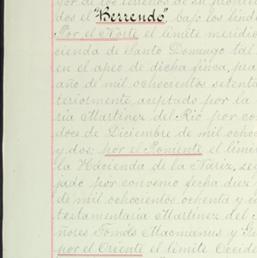 por de los terrenos de su propied
dos el "Berrendo", bajo los linde
Por el Norte el limite meridio
cienda de Santo Domingo tal
en el apeo de dicha finca, pra
año de mil ochocientos setenta
teriormente aceptado por la
ria Martinez del Rio por co
doce de Diciembre de mil ocho
y dos; por el Poniente el limi
la Hacienda de la Nariz, se
pado por convenio fecha diez
de mil ochocientos ochenta y c
testamentaria Martinez del
ñores Tomás Macmanus y
por el Oriente el limite Occide